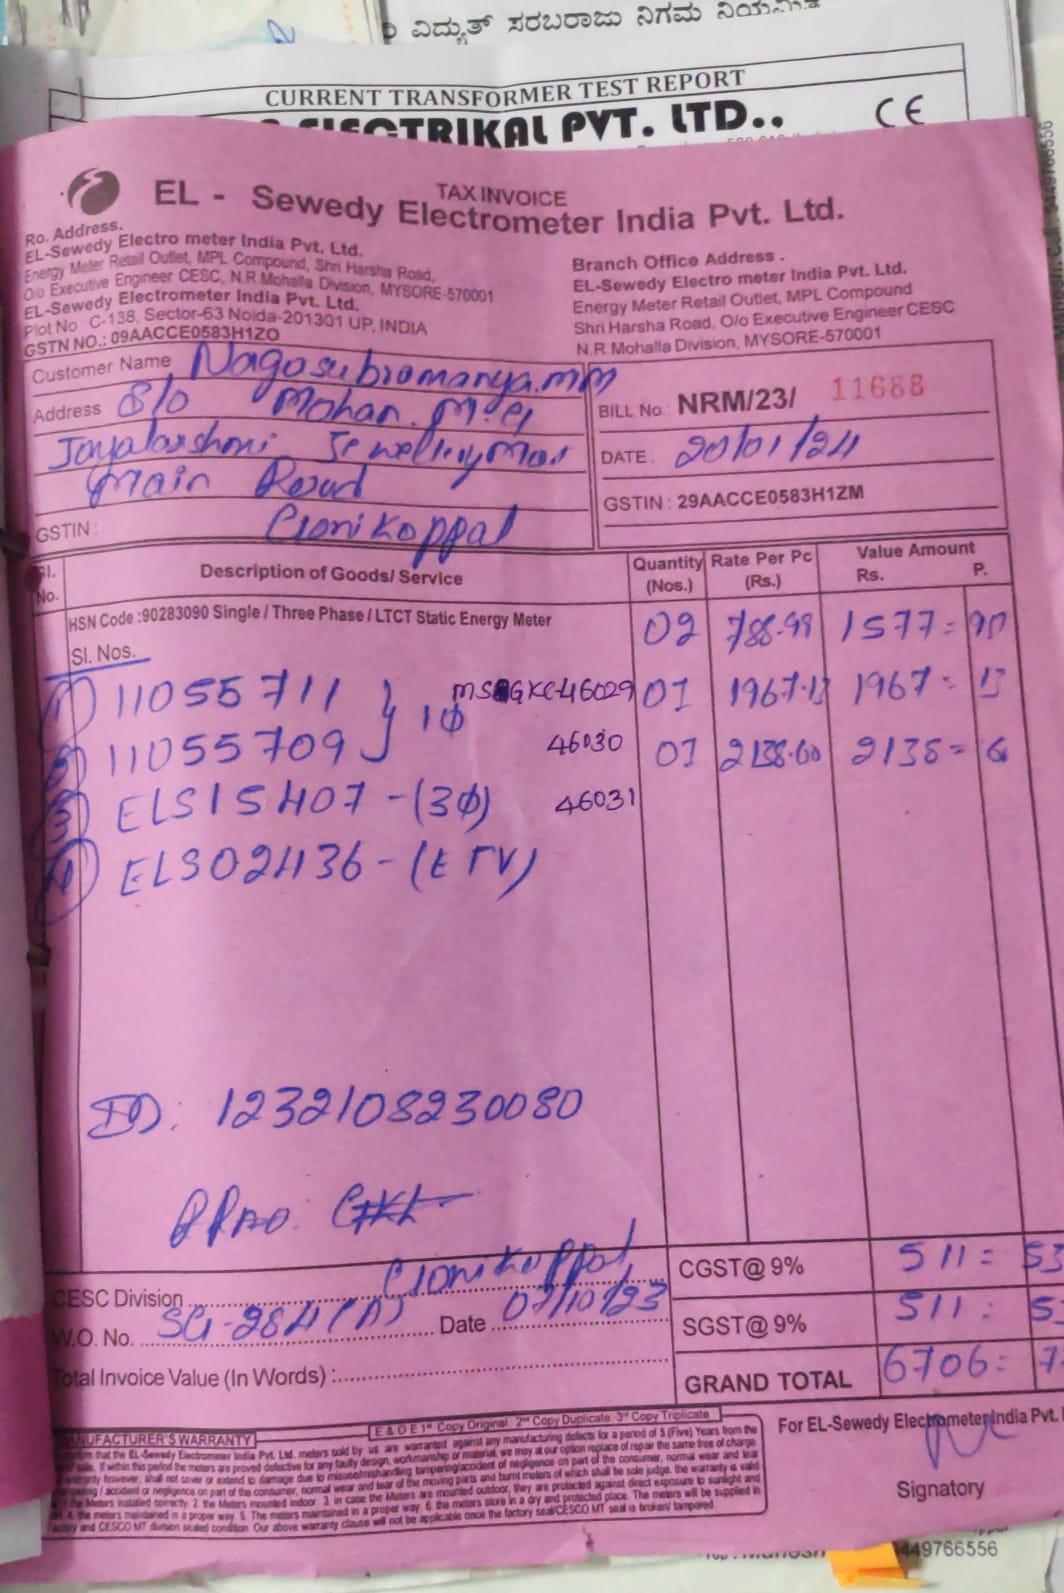 ವಿದ್ಯುತ್ ಸರಬರಾಜು ನಿಗಮ
CURRENT TRANSFORMER TEST REPORT
ELECTRIKAL PVT. LTD..
CE
TAX INVOICE
EL - Sewedy Electrometer India Pvt. Ltd.
Ro. Address.
EL-Sewedy Electro meter India Pvt. Ltd.
Energy Meter Retail Outlet, MPL Compound, Shri Harsha Road,
O/o Executive Engineer CESC, N.R.Mohalla Division, MYSORE-570001
EL-Sewedy Electrometer India Pvt. Ltd.
Plot No C-138, Sector-63 Noida-201301 UP, INDIA
GSTN NO.: 09AACCE0583H1ZO
Branch Office Address .
EL-Sewedy Electro meter India Pvt. Ltd.
Energy Meter Retail Outlet, MPL Compound
Shri Harsha Road, O/o Executive Engineer CESC
N.R.Mohalla Division, MYSORE-570001
Customer Name Nagasubromanya.mm
Address S/o Mohan.
Jayalaxshmi
Main Road
GSTIN : Gonikoppal
BILL No.: NRM/23/ 11688
DATE . 20/01/24
GSTIN : 29AACCE0583H1ZM
Sl. No. Description of Goods/ Service Quantity (Nos.) Rate Per Pc (Rs.) Value Amount Rs. P.
HSN Code :90283090 Single / Three Phase / LTCT Static Energy Meter 02 788.99 1577=
Sl. Nos.
1) 11055711 } 1Φ 46029 01 1967.13 1967= 13
2) 11055709 46030 01 2138.60 2138=
3) ELS15407 -(3Φ) 46031
4) ELS02436 - (ETV)
ID: 1232108230080
RRno.
CESC Division Gonikoppal
W.O. No. SG-284(A) Date 07/10/23
Total Invoice Value (In Words) :
CGST@ 9% 511= 53
SGST@ 9% 511=
GRAND TOTAL 6706=
E & O E 1st Copy Original 2nd Copy Duplicate 3rd Copy Triplicate
MANUFACTURER'S WARRANTY
that the EL-Sewedy Electrometer India Pvt. Ltd. meters sold by us are warranted against any manufacturing defects for a period of 5 (Five) Years from the
sale. If within this period the meters are proved defective for any faulty design, workmanship or material, we may at our option replace of repair the same free of charge.
warranty however, shall not cover or extend to damage due to misuse/mishandling tampering/accident of negligence on part of the consumer, normal wear and tear
/ accident or negligence on part of the consumer, normal wear and tear of the moving parts and burnt meters of which shall be sole judge. the warranty is valid
the Meters installed correctly. 2. the Meters mounted indoor. 3. in case the Meters are mounted outdoor, they are protected against direct exposure to sunlight and
4. the meters maintained in a proper way. 5. The meters maintained in a proper way. 6. the meters store in a dry and protected place. The meters will be supplied in
factory and CESCO MT division sealed condition. Our above warranty clause will not be applicable once the factory seal/CESCO MT seal is broken/ tampered.
For EL-Sewedy Electrometer India Pvt.
Signatory
449766556